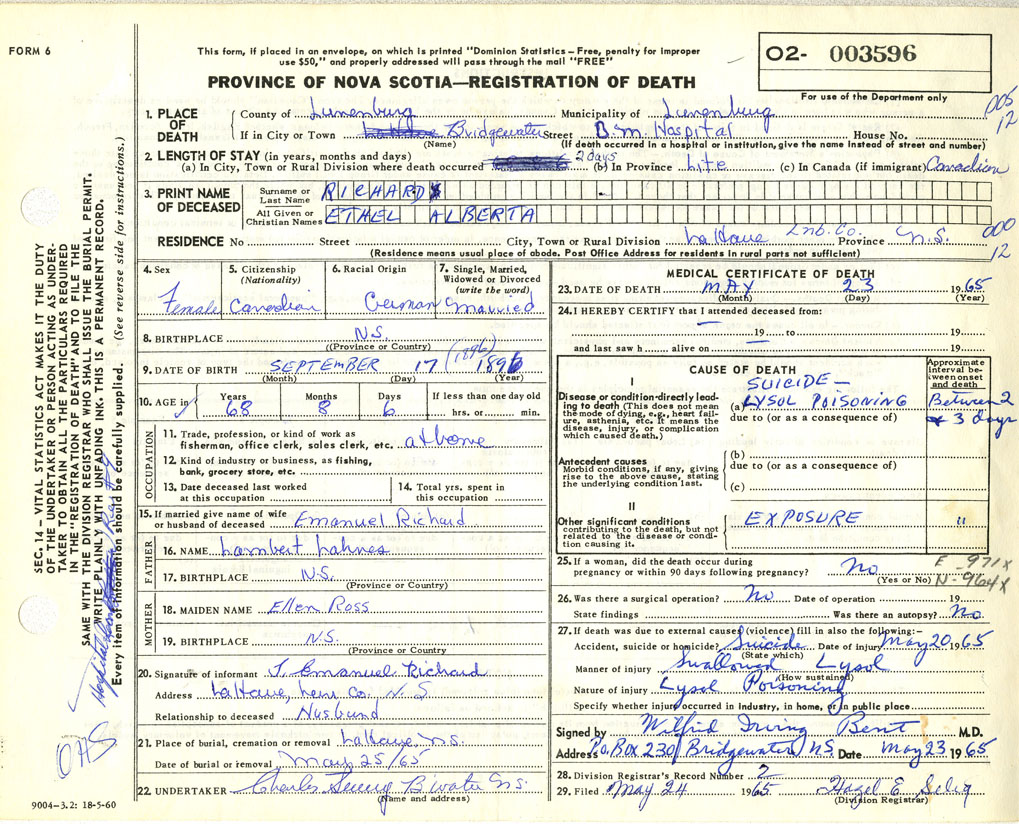 FORM 6
This form, if placed in an envelope, on which is printed "Dominion Statistics – Free, penalty for improper
use $50," and properly addressed will pass through the mail "FREE"
O2- 003596
PROVINCE OF NOVA SCOTIA—REGISTRATION OF DEATH
For use of the Department only
005
12
1. PLACE OF DEATH
County of Lunenburg Municipality of Lunenburg
If in City or Town Bridgewater Street B.m. Hospital House No.
(Name) (If death occurred in a hospital or institution, give the name instead of street and number)
2. LENGTH OF STAY (in years, months and days)
(a) In City, Town or Rural Division where death occurred 2 days (b) In Province Life (c) In Canada (if immigrant) Canadian
3. PRINT NAME OF DECEASED
Surname or Last Name RICHARD
All Given or Christian Names ETHEL ALBERTA
RESIDENCE No Street City, Town or Rural Division LaHave Lnb. Co. Province N.S.
000
12
(Residence means usual place of abode. Post Office Address for residents in rural parts not sufficient)
4. Sex Female
5. Citizenship (Nationality) Canadian
6. Racial Origin German
7. Single, Married, Widowed or Divorced (write the word) Married
8. BIRTHPLACE N.S.
((Province or Country)
9. DATE OF BIRTH SEPTEMBER 17 (1896) 1896
(Month) (Day) (Year)
10. AGE in Years 68 Months 8 Days 6 If less than one day old hrs. or min.
OCCUPATION
11. Trade, profession, or kind of work as fisherman, office clerk, sales clerk, etc. at home
12. Kind of industry or business, as fishing, bank, grocery store, etc.
13. Date deceased last worked at this occupation
14. Total yrs. spent in this occupation
15. If married give name of wife or husband of deceased Emanuel Richard
FATHER
16. NAME Lambert Lohnes
17. BIRTHPLACE N.S.
(Province or Country)
MOTHER
18. MAIDEN NAME Ellen Ross
19. BIRTHPLACE N.S.
(Province or Country
20. Signature of informant J. Emanuel Richard
Address LaHave, Lun. Co. N.S
Relationship to deceased Husband
21. Place of burial, cremation or removal LaHave, N.S.
Date of burial or removal May 25/65
22. UNDERTAKER Charles B'water N.S.
(Name and address)
9004–3.2: 18-5-60
MEDICAL CERTIFICATE OF DEATH
23. DATE OF DEATH MAY 23 1965
(Month) (Day) (Year)
24. I HEREBY CERTIFY that I attended deceased from:
19 to 19
and last saw h alive on 19
CAUSE OF DEATH
Approximate interval between onset and death
I
Disease or condition directly leading to death (This does not mean the mode of dying, e.g., heart failure, asthenia, etc. It means the disease, injury, or complication which caused death.)
SUICIDE –
(a) LYSOL POISONING Between 2 & 3 days
due to (or as a consequence of)
Antecedent causes
Morbid conditions, if any, giving rise to the above cause, stating the underlying condition last.
(b)
due to (or as a consequence of)
(c)
II
Other significant conditions contributing to the death, but not related to the disease or condition causing it.
EXPOSURE "
25. If a woman, did the death occur during pregnancy or within 90 days following pregnancy? No
(Yes or No)
E -971x
N-964x
26. Was there a surgical operation? No Date of operation 19
State findings Was there an autopsy? No
27. If death was due to external causes (violence) fill in also the following:–
Accident, suicide or homicide? Suicide Date of injury May 20 1965
(State which)
Manner of injury Swallowed Lysol
(How sustained)
Nature of injury Lysol Poisoning
Specify whether injury occurred in industry, in home, or in public place
Signed by Wilfrid Irving Bent M.D.
Address P.O. Box 230 Bridgewater N.S. Date May 23 1965
28. Division Registrar's Record Number 2
29. Filed May 24 1965 Hazel E. Selig
(Division Registrar)
SEC. 14 – VITAL STATISTICS ACT MAKES IT THE DUTY
OF THE UNDERTAKER OR PERSON ACTING AS UNDER-
TAKER TO OBTAIN ALL THE PARTICULARS REQUIRED
IN THE "REGISTRATION OF DEATH" AND TO FILE THE
SAME WITH THE DIVISION REGISTRAR WHO SHALL ISSUE THE BURIAL PERMIT.
WRITE PLAINLY WITH UNFADING INK. THIS IS A PERMANENT RECORD.
Every item of information should be carefully supplied. (See reverse side for instructions.)
OHS